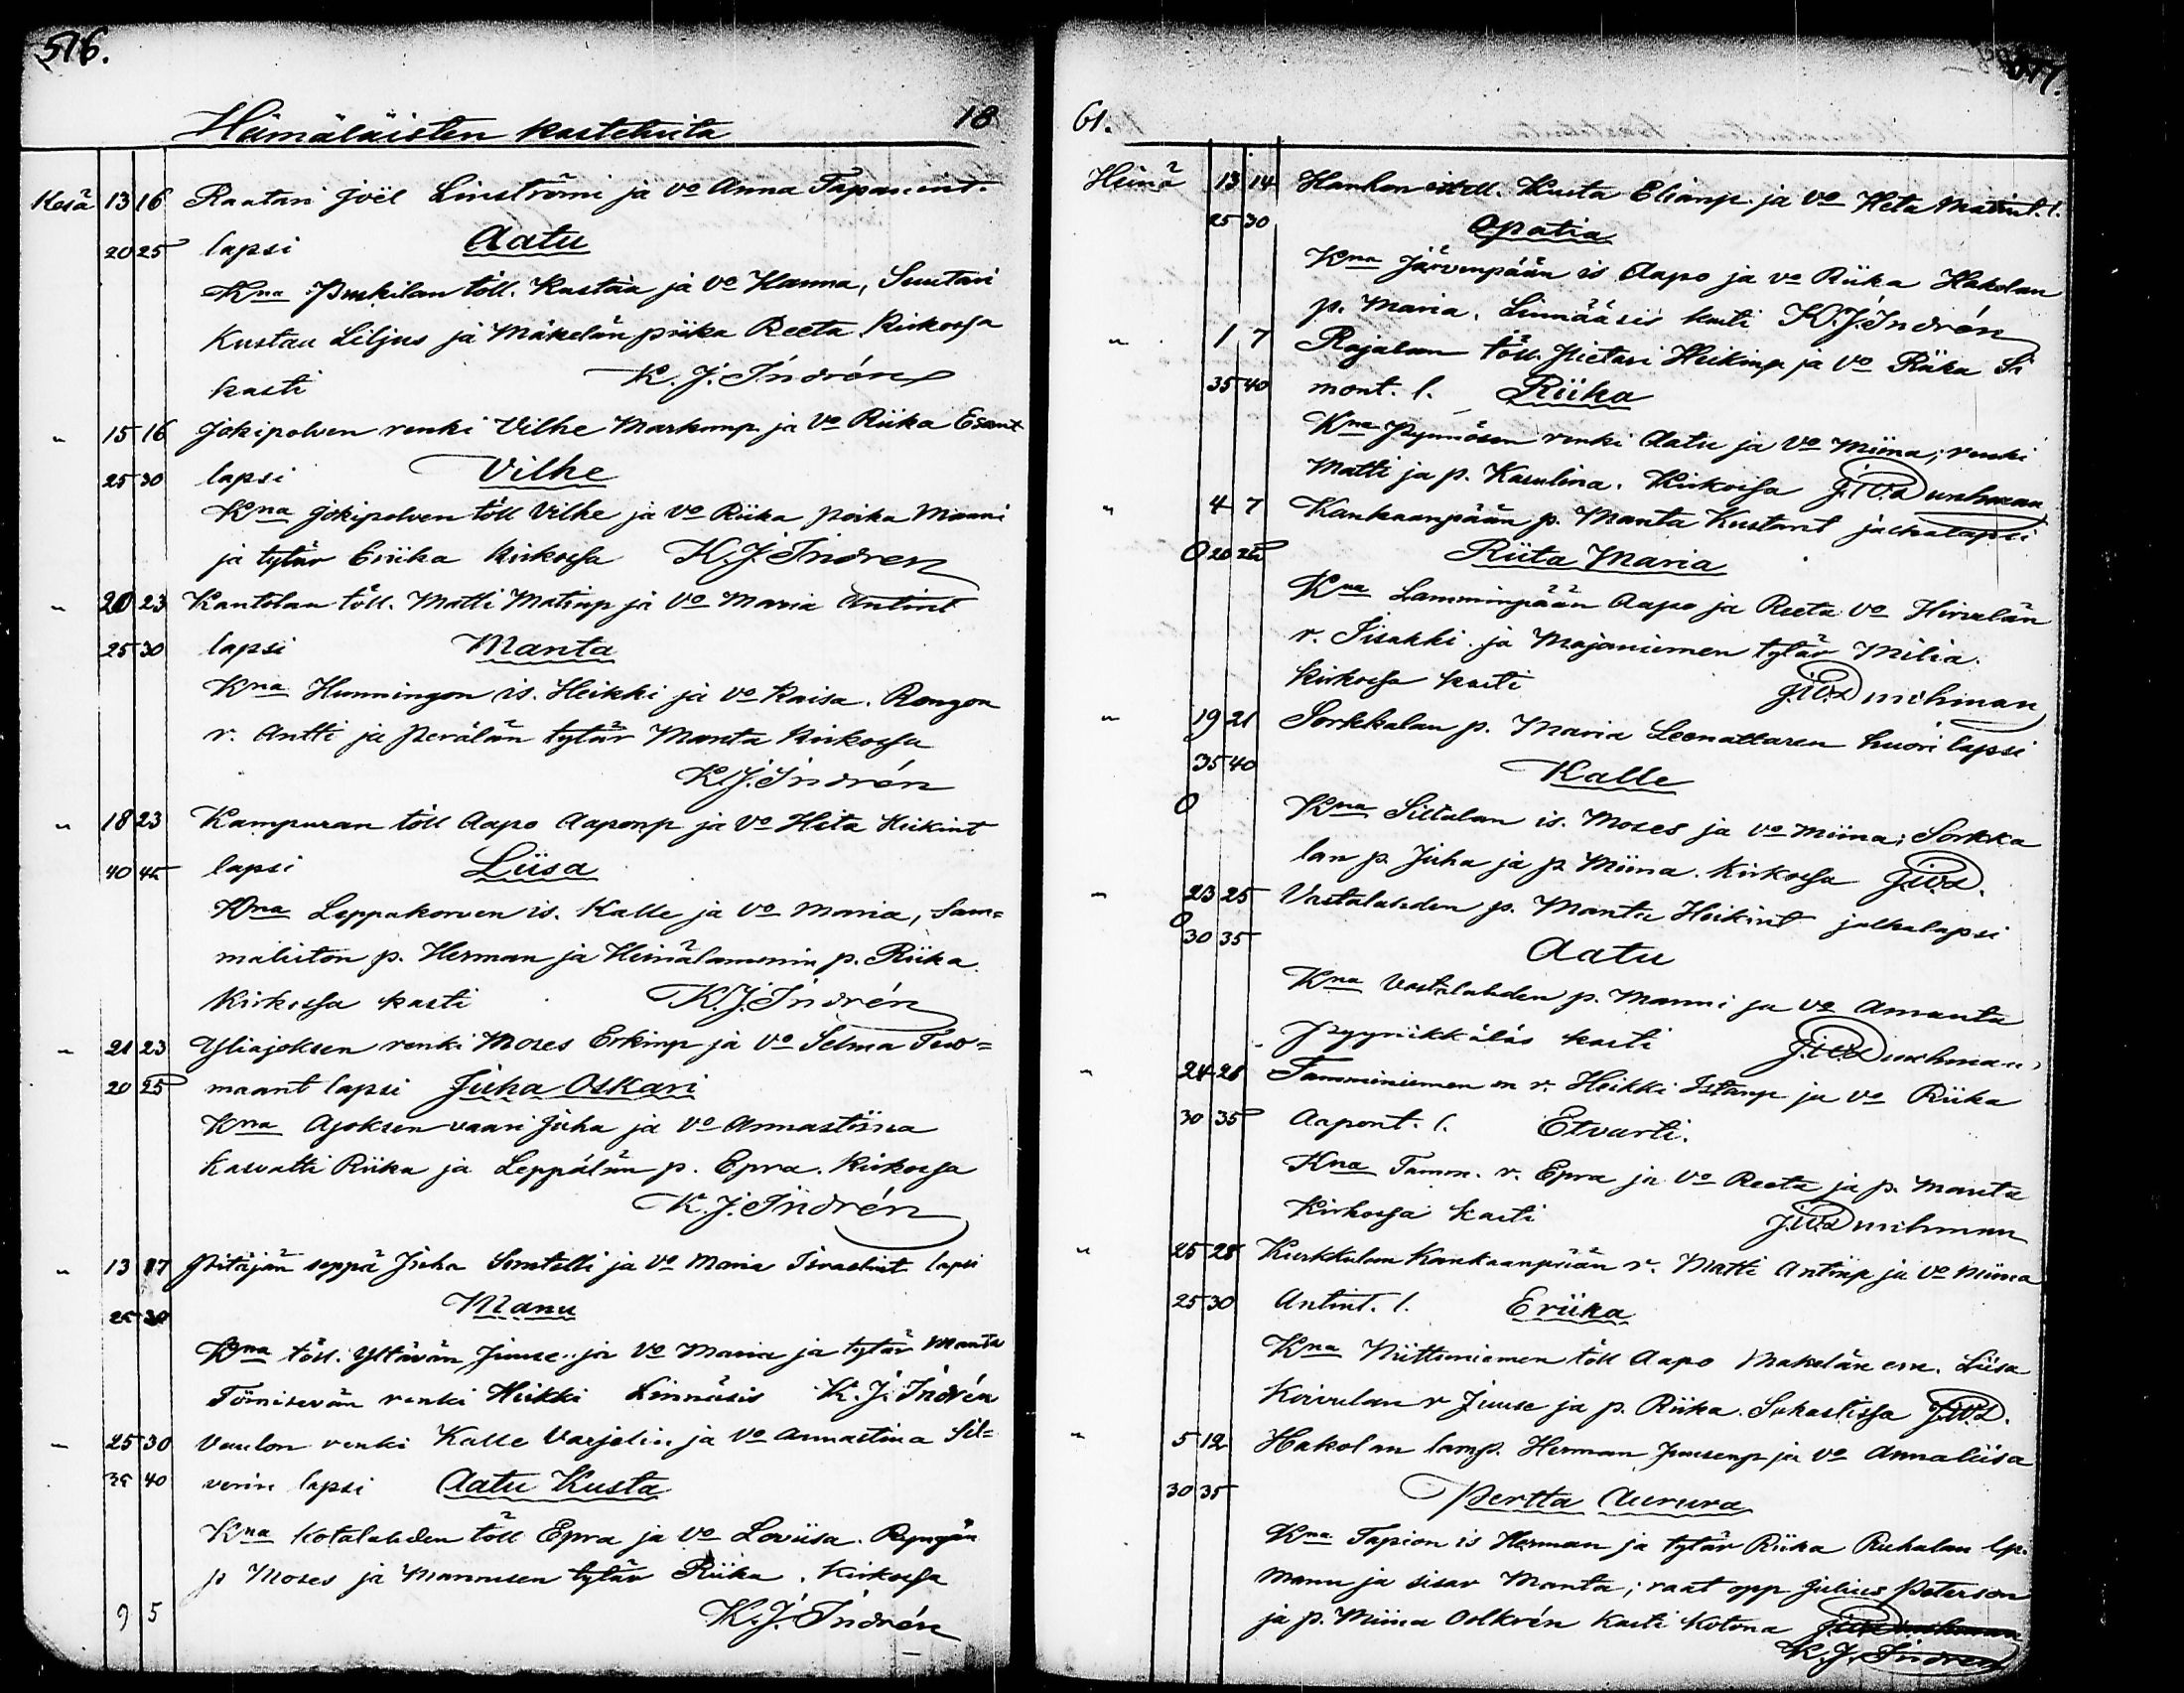 576.
Hämäläisten kasteluita 18
Kesä 13 16 Raatari Joël Linströmi ja vo Anna Tapanint.
20 25 lapsi Aatu
Kna Puskilan töll. Kustaa ja vo Hanna, Suutari
Kustau Liljus ja Mäkelän piika Reeta. Kirkossa
kasti K. J. Indrén
" 15 16 Jokipolven renki Vilhe Markunp. ja vo Riika Esant
25 30 lapsi Vilhe
Kna Jokipolven töll Vilhe ja vo Riika poika Manni
ja tytär Eriika Kirkossa K. J. Indren
" 20 23 Kantolan töll. Matti Matinp ja vo Maria Antint
25 30 lapsi Manta
Kna Hunningon is. Heikki ja vo Kaisa. Rongon
r. Antti ja Perälän tytär Manta Kirkossa
K. J. Indrén
" 18 23 Kampuran töll Aapo Aaponp ja vo Heta Heikint
40 45 lapsi Liisa
Kna Leppakorven is. Kalle ja vo Maria, Sam=
maliston p. Herman ja Heinälammin p. Riika.
Kirkossa kasti K. J. Indrén
" 21 23 Yliajoksen renki Moses Erkinp ja vo Selma Tuo=
20 25 maant lapsi Juha Oskari
Kna Ajoksen vaari Juha ja vo Annastiina
kasvatti Riika ja Leppälän p. Epra. Kirkossa
K. J. Indrén
" 13 17 Pitäjän seppä Juha ja vo Maria Israelint lapsi
25 30 Manu
Kna töll. Yltävän Juuse ja vo Maria ja tytär Manta
Törnisevän renki Heikki Linnäsis K. J. Indrén
" 25 30 Vaulon renki Kalle Varjelin ja vo Annastina Sil=
35 40 verin lapsi Aatu Kusta
Kna Kotalahden töll Epra ja vo Loviisa.
p Moses ja Mannisen tytär Riika. Kirkossa
9 5 K. J. Indrén
577.
61.
Heinä 13 14 Hanhon Kusta Elianp. ja vo Heta Matint. l.
25 30 Opatia
Kna Järvenpään is Aapo ja vo Riika Hakolan
p. Maria. Linnääsis kasti K. J. Indrén
" 1 7 Rajalan töll. Pietari Heikinp ja vo Riika Si
35 40 mont. l. Riika
Kna Pynnösen renki Aatu ja vo Miina; renki
Matti ja p. Karulina. Kirkossa
" 4 7 Kankaanpään p. Manta Kustant jalkalapsi
0 20 25 Riita Maria
Kna Lamminpään Aapo ja Reeta vo Hirvelän
r. Iisakki ja Majaniemen tytär Milia.
Kirkossa kasti
" 19 21 Sorkkalan p. Maria Leenattaren huori lapsi
35 40 Kalle
0 Kna Siltalan is. Moses ja vo Miina; Sorkka
lan p. Juha ja p Miina. Kirkossa
" 23 25 Vastalahden p. Manta Heikint jalkalapsi
0 30 35 Aatu
Kna Vastalahden p. Manni ja vo Amanta
Pyynikkäläs kasti
" 24 28 Tamminiemen en r. Heikki Istanp ja vo Riika
30 35 Aapont. l. Etvarti.
Kna Tamm. r. Epra ja vo Reeta ja p. Manta
Kirkossa kasti
" 25 28 Kurkkulan Kankaanpään r. Matti Antinp ja vo Miina
25 30 Antint. l. Eriika
Kna Niittuniemen töll Aapo Mäkelän em. Liisa
Koivulan r Juuse ja p. Riika. Sakastissa
" 5 12 Hakolan lamp. Herman Juusenp ja vo Annaliisa
30 35 Pertta Aurura
Kna Tapion is Herman ja tytär Riika Ruhalan lp.
Manu ja sisar Manta; raat opp Julius Peterson
ja p. Miina kasti Kotona
K. J. Indrén